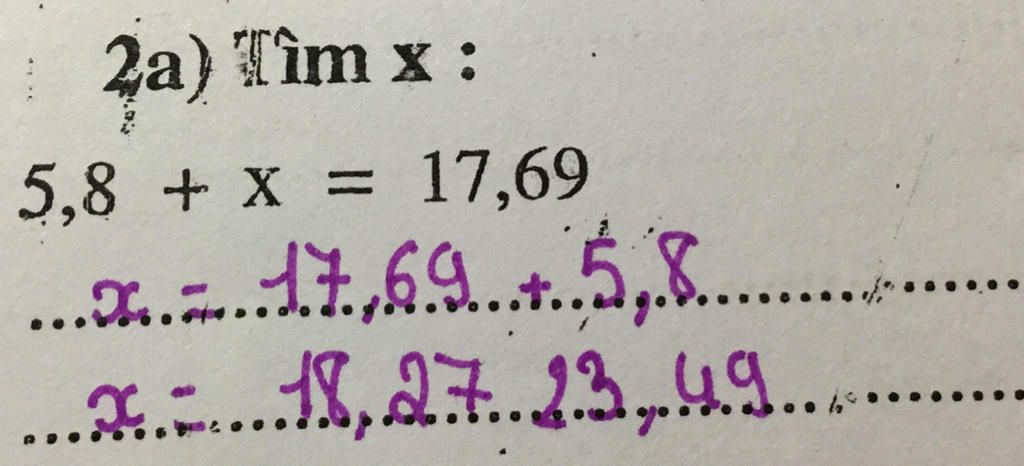 2a) Tìm x :
5,8 + x = 17,69
x = 17,69 + 5,8
x = 18,27 23,49